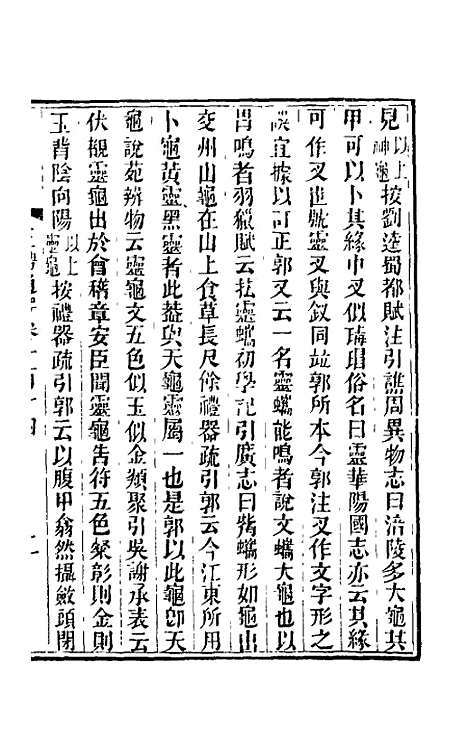 見以上神龜按劉逵蜀都賦注引譙周異物志曰涪陵多大龜其
甲可以卜其緣中叉似瑇瑁俗名曰靈華陽國志亦云其緣
可作叉進號靈叉與釵同竝郭所本今郭注叉作文字形之
誤宜據以訂正郭又云一名靈蠵能鳴者說文蠵大龜也以
胃鳴者羽獵賦云抾靈蠵初學記引廣志曰觜蠵形如龜出
交州山龜在山上食草長尺餘禮器疏引郭云今江東所用
卜龜黃靈黑靈者此葢與天龜靈屬一也是郭以此龜卽天
龜說苑辨物云靈龜文五色似玉似金類聚引吳謝承表云
伏覩靈龜出於會稽章安臣聞靈龜告符五色粲彰則金則
玉背陰向陽以上靈龜按禮器疏引郭云以腹甲翕然攝斂頭閉